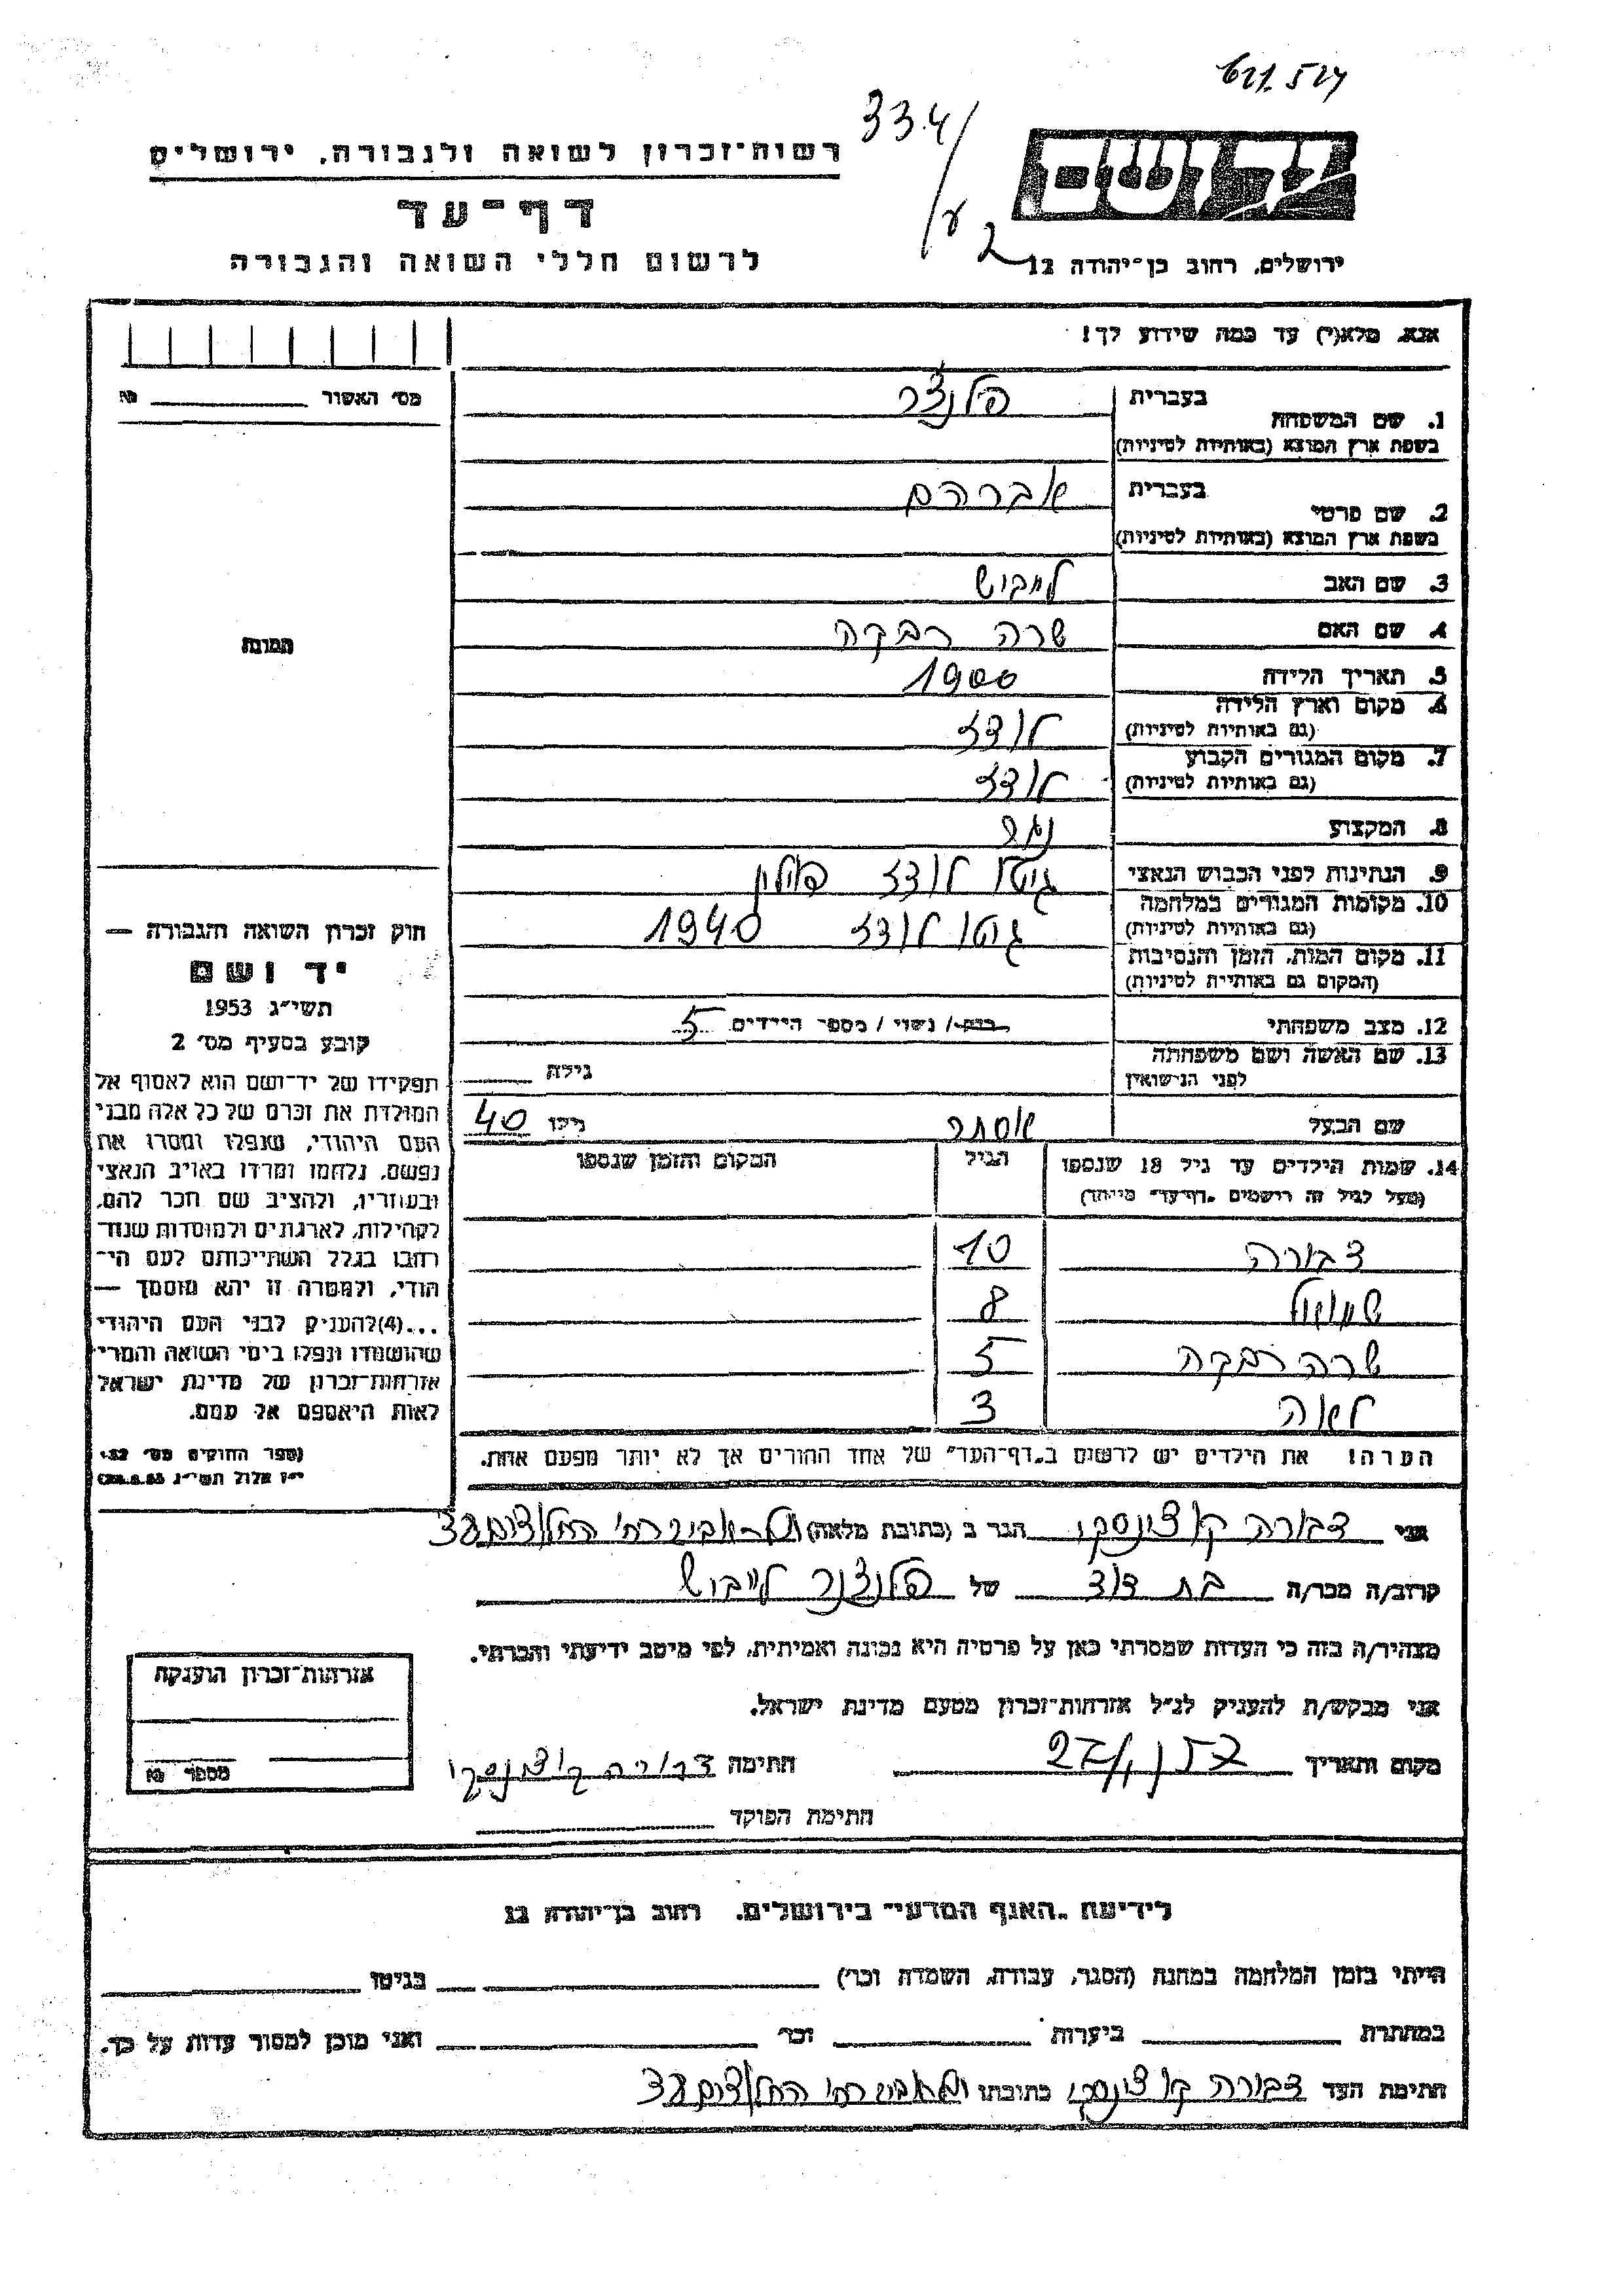 621.524
334/
רשות־זכרון לשואה ולגבורה, ירושלים
יד ושם
דף־עד
לרשום חללי השואה והגבורה
ירושלים, רחוב בן־יהודה 12
אנא, מלא(י) עד כמה שידוע לך!
מס׳ האשור № ______
1. שם המשפחה בעברית פלנצר
בשפת ארץ המוצא (באותיות לטיניות)
2. שם פרטי בעברית אברהם
בשפת ארץ המוצא (באותיות לטיניות)
3. שם האב לייבוש
4. שם האם שרה רבקה
5. תאריך הלידה 1900
6. מקום וארץ הלידה לודז
(גם באותיות לטיניות)
7. מקום המגורים הקבוע לודז
(גם באותיות לטיניות)
8. המקצוע נגר
9. הנתינות לפני הכבוש הנאצי גיטו לודז פולין
10. מקומות המגורים במלחמה גיטו לודז 1940
(גם באותיות לטיניות)
11. מקום המות, הזמן והנסיבות
(המקום גם באותיות לטיניות)
12. מצב משפחתי רווק / נשוי / מספר הילדים 5
13. שם האשה ושם משפחתה גילה ____
לפני הנישואין
שם הבעל אסתר גילו 40
14. שמות הילדים עד גיל 18 שנספו הגיל המקום והזמן שנספו
(מעל לגיל זה רושמים „דף־עד״ מיוחד)
דבורה 10
שמואל 8
שרה רבקה 5
לאה 3
הערה! את הילדים יש לרשום ב„דף־העד״ של אחד ההורים אך לא יותר מפעם אחת.
תמונה
חוק זכרון השואה והגבורה —
יד ושם
תשי״ג 1953
קובע בסעיף מס׳ 2
תפקידו של יד־ושם הוא לאסוף אל
המולדת את זכרם של כל אלה מבני
העם היהודי, שנפלו ומסרו את
נפשם, נלחמו ומרדו באויב הנאצי
ובעוזריו, ולהציב שם וזכר להם,
לקהילות, לארגונים ולמוסדות שנח־
רבו בגלל השתייכותם לעם הי־
הודי, ולמטרה זו יהא מוסמך —
...(4)להעניק לבני העם היהודי
שהושמדו ונפלו בימי השואה והמרי
אזרחות־זכרון של מדינת ישראל
לאות היאספם אל עמם.
(ספר החוקים מס׳ 132,
י״ז אלול תשי״ג 28.8.53)
אני דבורה קוצינסקי הגר ב (כתובת מלאה) תל-אביב רח׳ החלוצים 38
קרוב/ה מכר/ה בת דוד של פלנצר לייבוש
מצהיר/ה בזה כי העדות שמסרתי כאן על פרטיה היא נכונה ואמיתית, לפי מיטב ידיעתי והכרתי.
אני מבקש/ת להעניק לנ״ל אזרחות־זכרון מטעם מדינת ישראל.
מקום ותאריך חתימה דבורה קוצינסקי
חתימת הפוקד
אזרחות־זכרון הוענקה
מספר №
לידיעת „האגף המדעי״ בירושלים, רחוב בן־יהודה 12
הייתי בזמן המלחמה במחנה (הסגר, עבודה, השמדה וכר׳) ____ בגיטו ____
במחתרת ____ ביערות ____ וכר׳ ____ ואני מוכן למסור עדות על כך.
חתימת העד דבורה קוצינסקי כתובתו תל אביב רח׳ החלוצים 38